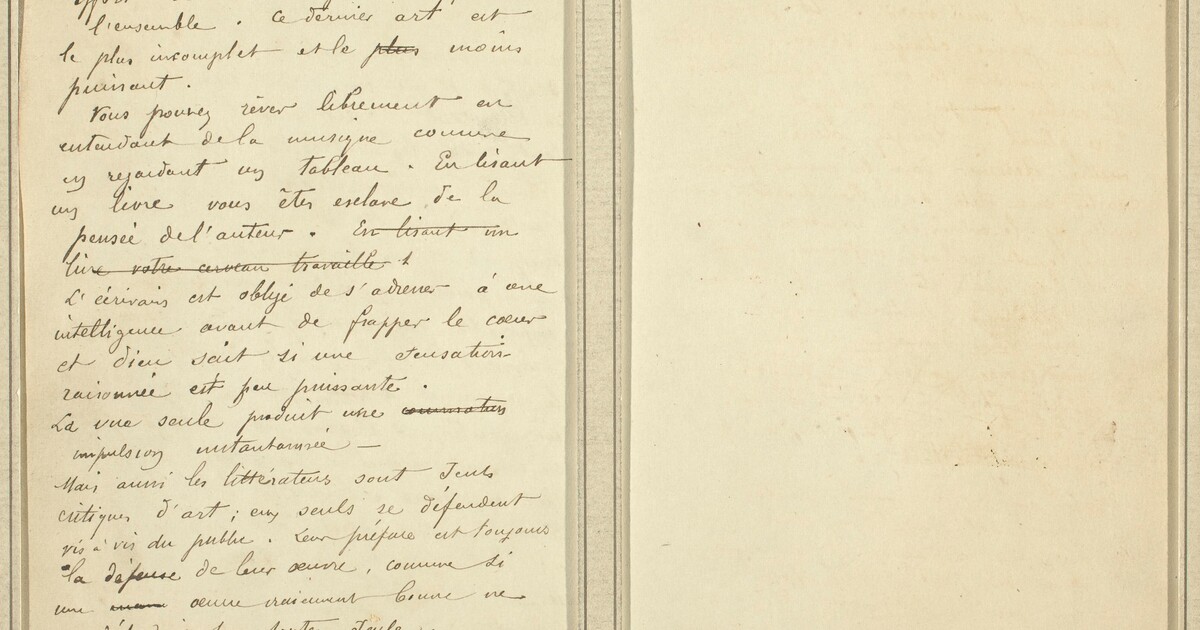 l'ensemble. Ce dernier art est
le plus incomplet et le plus moins
puissant.
Vous pouvez rêver librement en
entendant de la musique comme
en regardant un tableau. En lisant
un livre vous êtes esclave de la
pensée de l'auteur. En lisant un
livre votre cerveau travaille
L'écrivain est obligé de s'adresser à une
intelligence avant de frapper le coeur
et dieu sait si une sensation
raisonnée est peu puissante.
La vue seule produit une
impulsion instantanée —
Mais aussi les littérateurs sont seuls
critiques d'art ; eux seuls se défendent
vis à vis du public. Leur préface est toujours
la défense de leur oeuvre, comme si
une oeuvre vraiement bonne ne